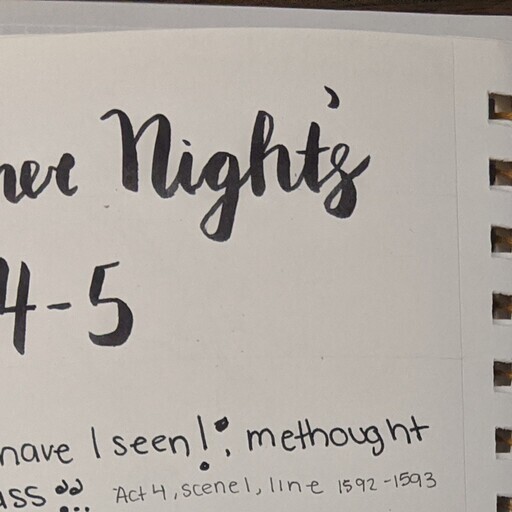 ner Night's
4-5
have I seen!, methought
ass" Act 4, scene 1, line 1592-1593